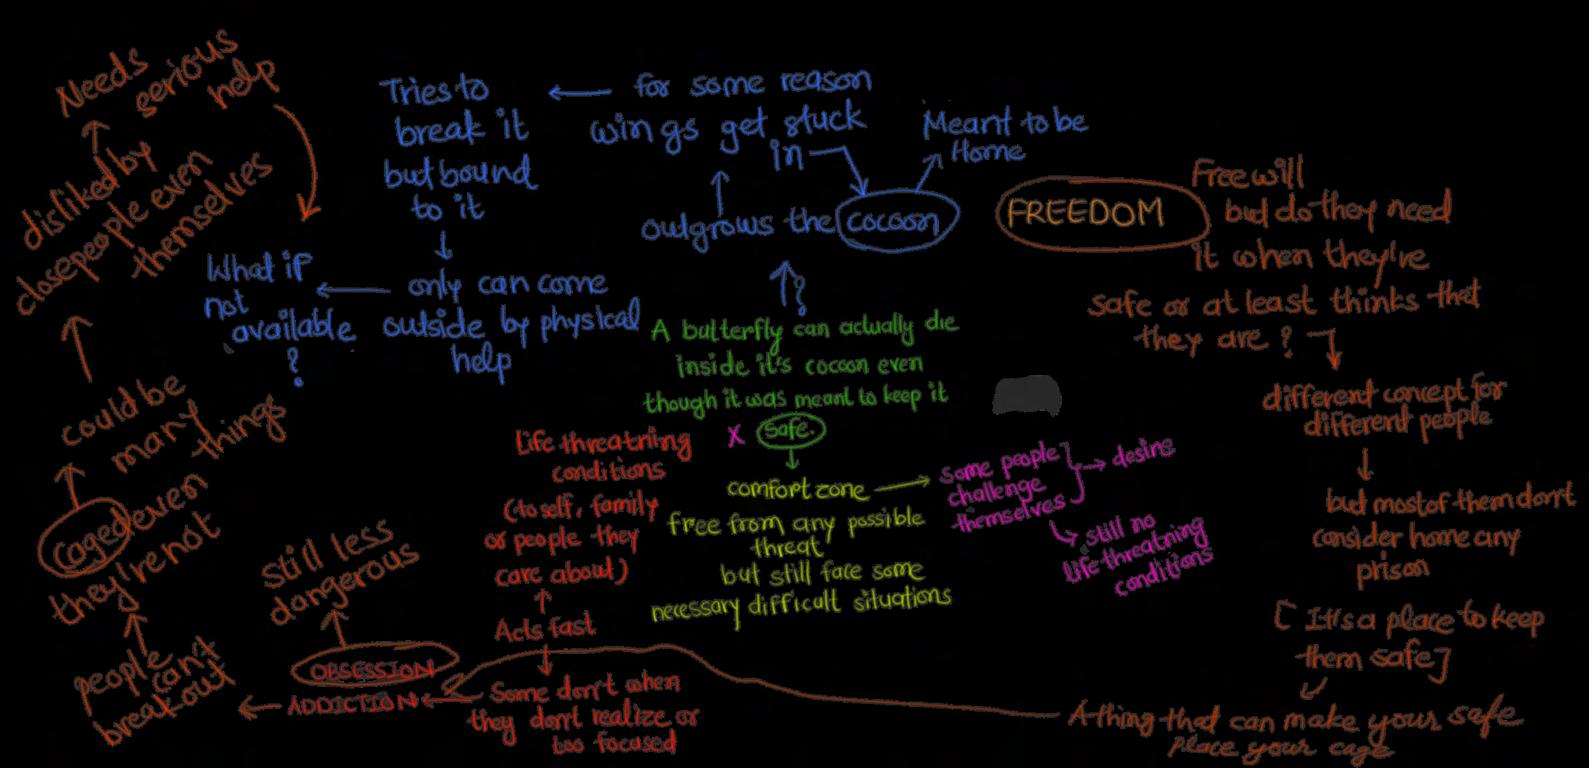 Needs
serious
help
disliked by
close people even
themselves
could be
many
things
caged even
they're not
people
can't
break out
Tries to
break it
but bound
to it
for some reason
wings get stuck
in
Meant to be
Home
outgrows the cocoon
What if
not
available
?
only can come
outside by physical
help
?
A butterfly can actually die
inside it's cocoon even
though it was meant to keep it
X safe.
comfort zone
free from any possible
threat
but still face some
necessary difficult situations
some people
challenge
themselves
desire
still no
life threatning
conditions
Life threatning
conditions
(to self, family
or people they
care about)
Acts fast
Some don't when
they don't realize or
too focused
still less
dangerous
OBSESSION
ADDICTION
FREEDOM
Free will
but do they need
it when they're
safe or at least thinks that
they are?
different concept for
different people
but most of them don't
consider home any
prison
[ It's a place to keep
them safe]
A thing that can make your safe
place your cage